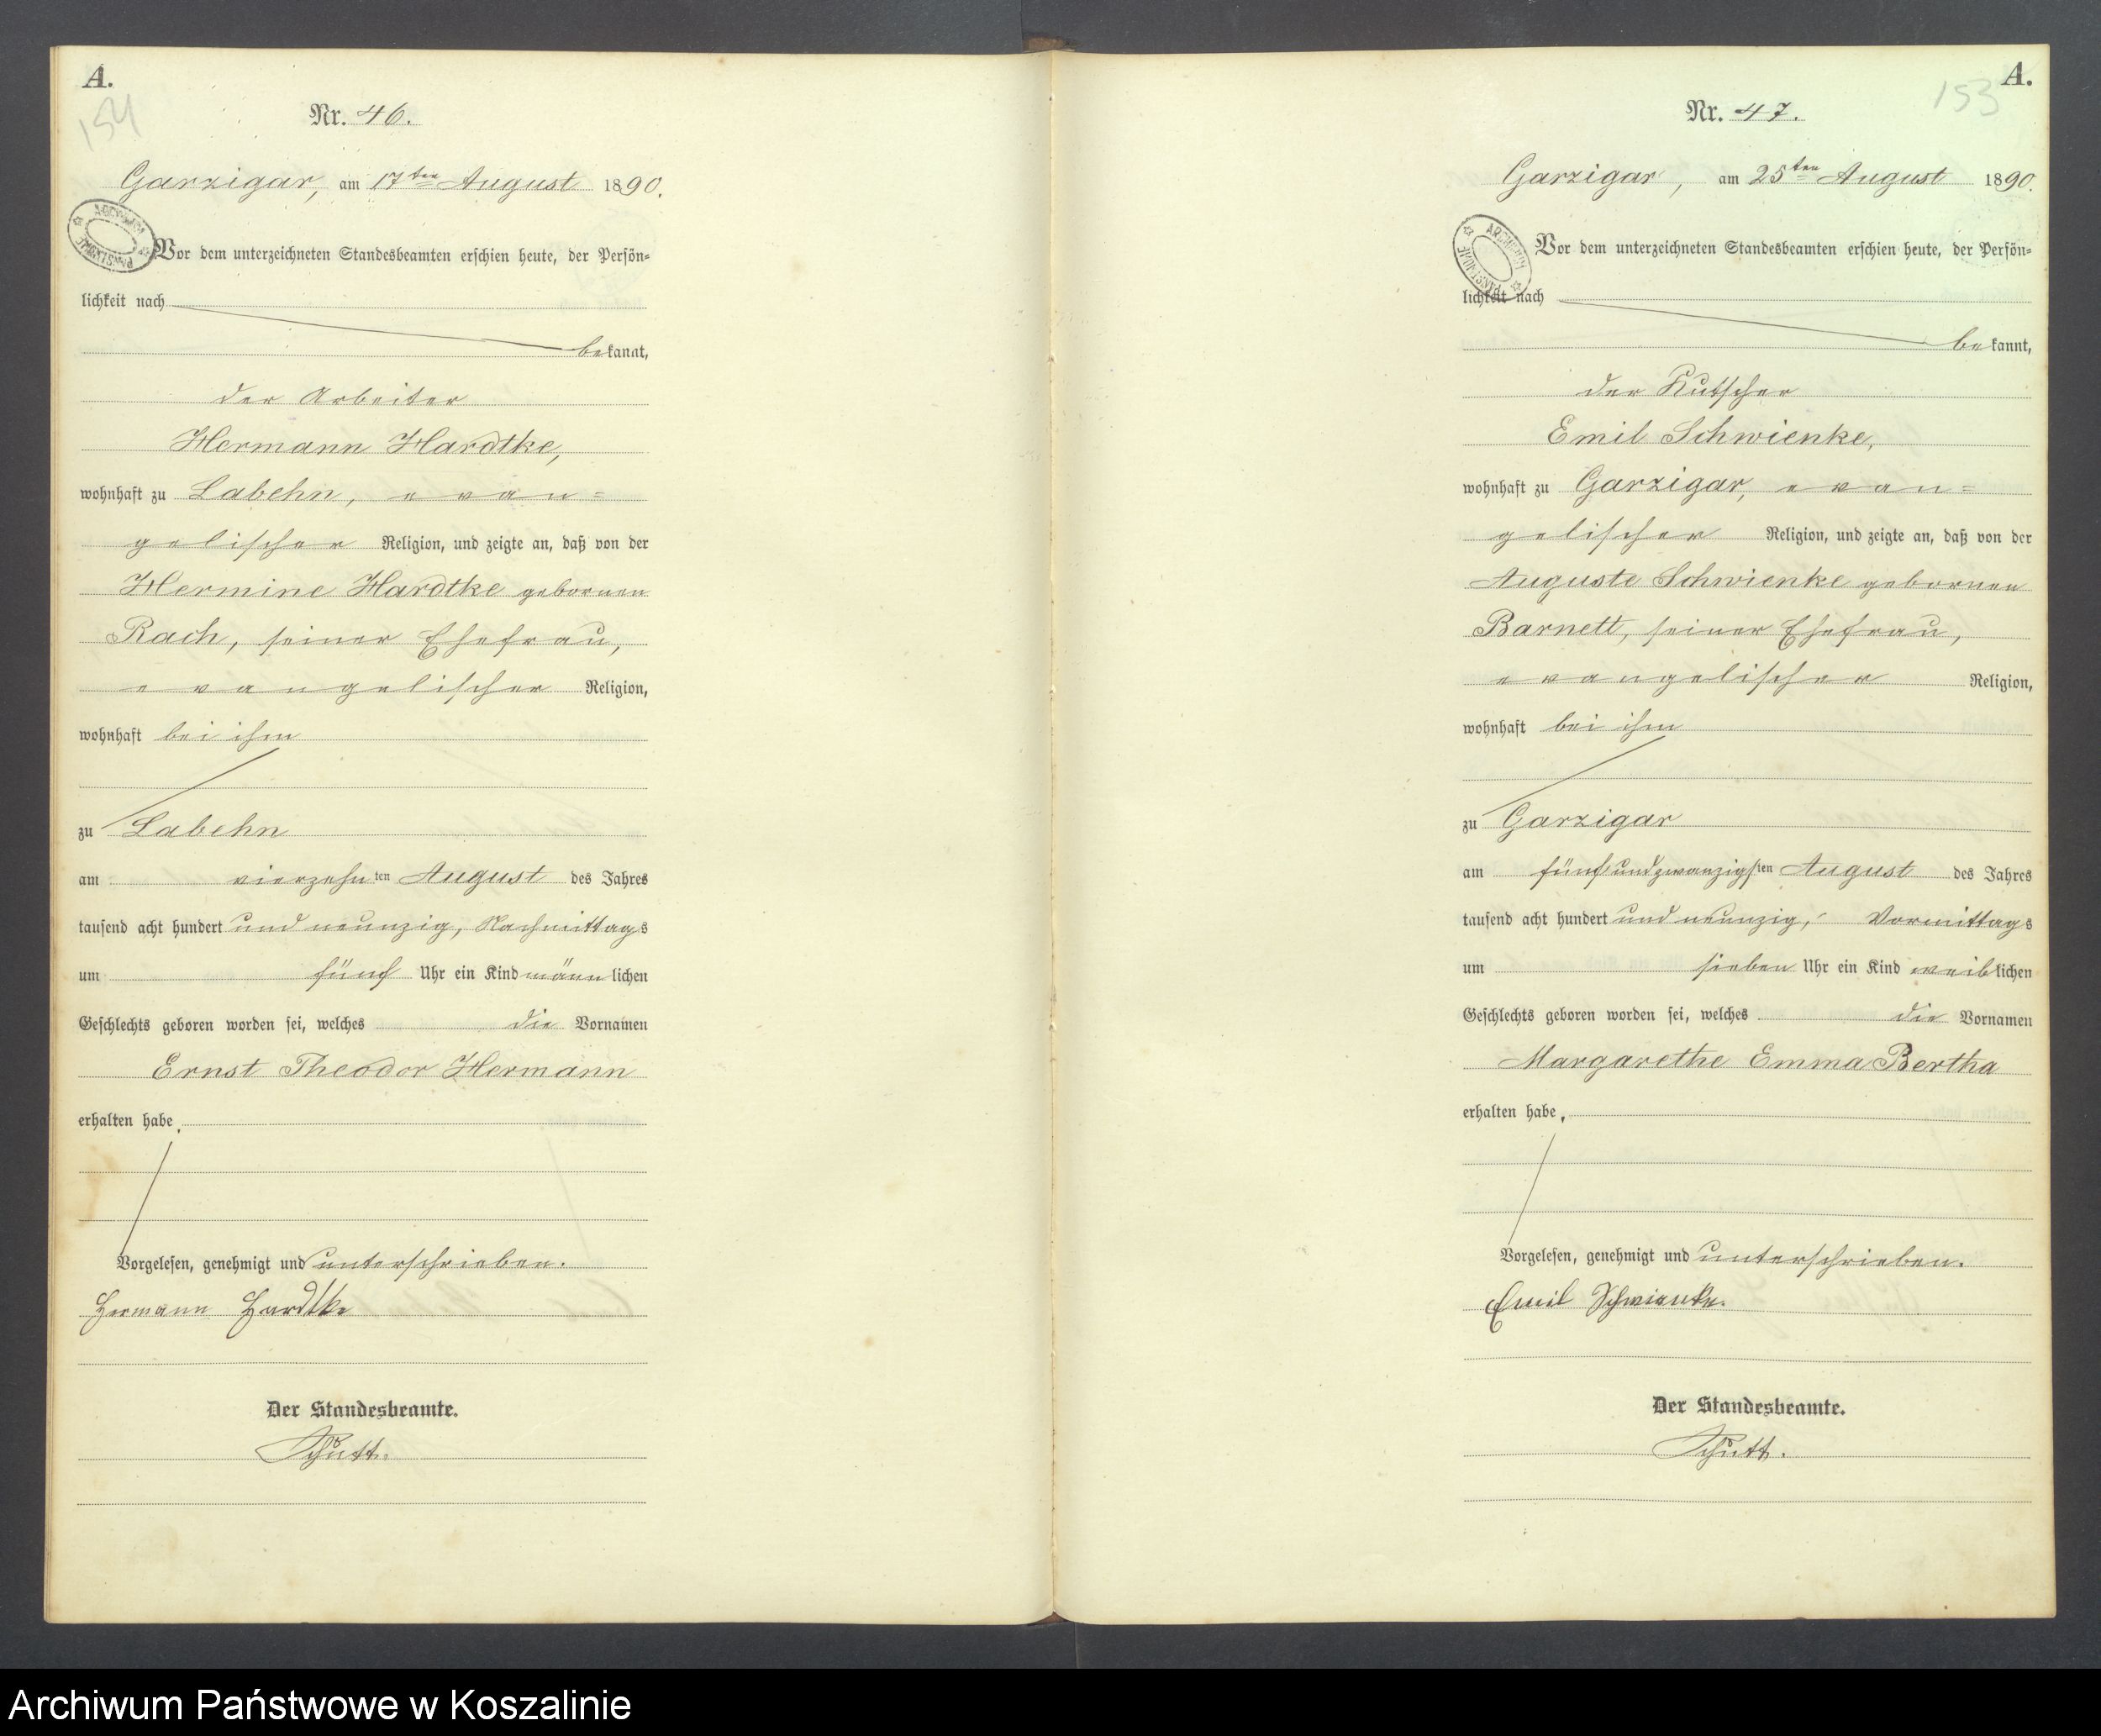 A.
154
Nr. 46.
Garzigar, am 17ten August 1890.
ARCHIWUM PAŃSTWOWE
Vor dem unterzeichneten Standesbeamten erschien heute, der Persön-
lichkeit nach
bekannt,
der Arbeiter
Hermann Hardtke,
wohnhaft zu Labehn, evan=
gelischer Religion, und zeigte an, daß von der
Hermine Hardtke gebornen
Rach, seiner Ehefrau,
evangelischer Religion,
wohnhaft bei ihm
zu Labehn
am vierzehnten August des Jahres
tausend acht hundert und neunzig, Nachmittags
um fünf Uhr ein Kind männlichen
Geschlechts geboren worden sei, welches die Vornamen
Ernst Theodor Hermann
erhalten habe.
Vorgelesen, genehmigt und unterschrieben.
Hermann Hardtke
Der Standesbeamte.
Schütt.
A.
153
Nr. 47.
Garzigar, am 25ten August 1890.
ARCHIWUM PAŃSTWOWE
Vor dem unterzeichneten Standesbeamten erschien heute, der Persön-
lichkeit nach
bekannt,
der Kutscher
Emil Schwienke,
wohnhaft zu Garzigar, evan=
gelischer Religion, und zeigte an, daß von der
Auguste Schwienke gebornen
Barnett, seiner Ehefrau,
evangelischer Religion,
wohnhaft bei ihm
zu Garzigar
am fünfundzwanzigsten August des Jahres
tausend acht hundert und neunzig, Vormittags
um sieben Uhr ein Kind weiblichen
Geschlechts geboren worden sei, welches die Vornamen
Margarethe Emma Bertha
erhalten habe.
Vorgelesen, genehmigt und unterschrieben.
Emil Schwienke.
Der Standesbeamte.
Schütt.
Archiwum Państwowe w Koszalinie